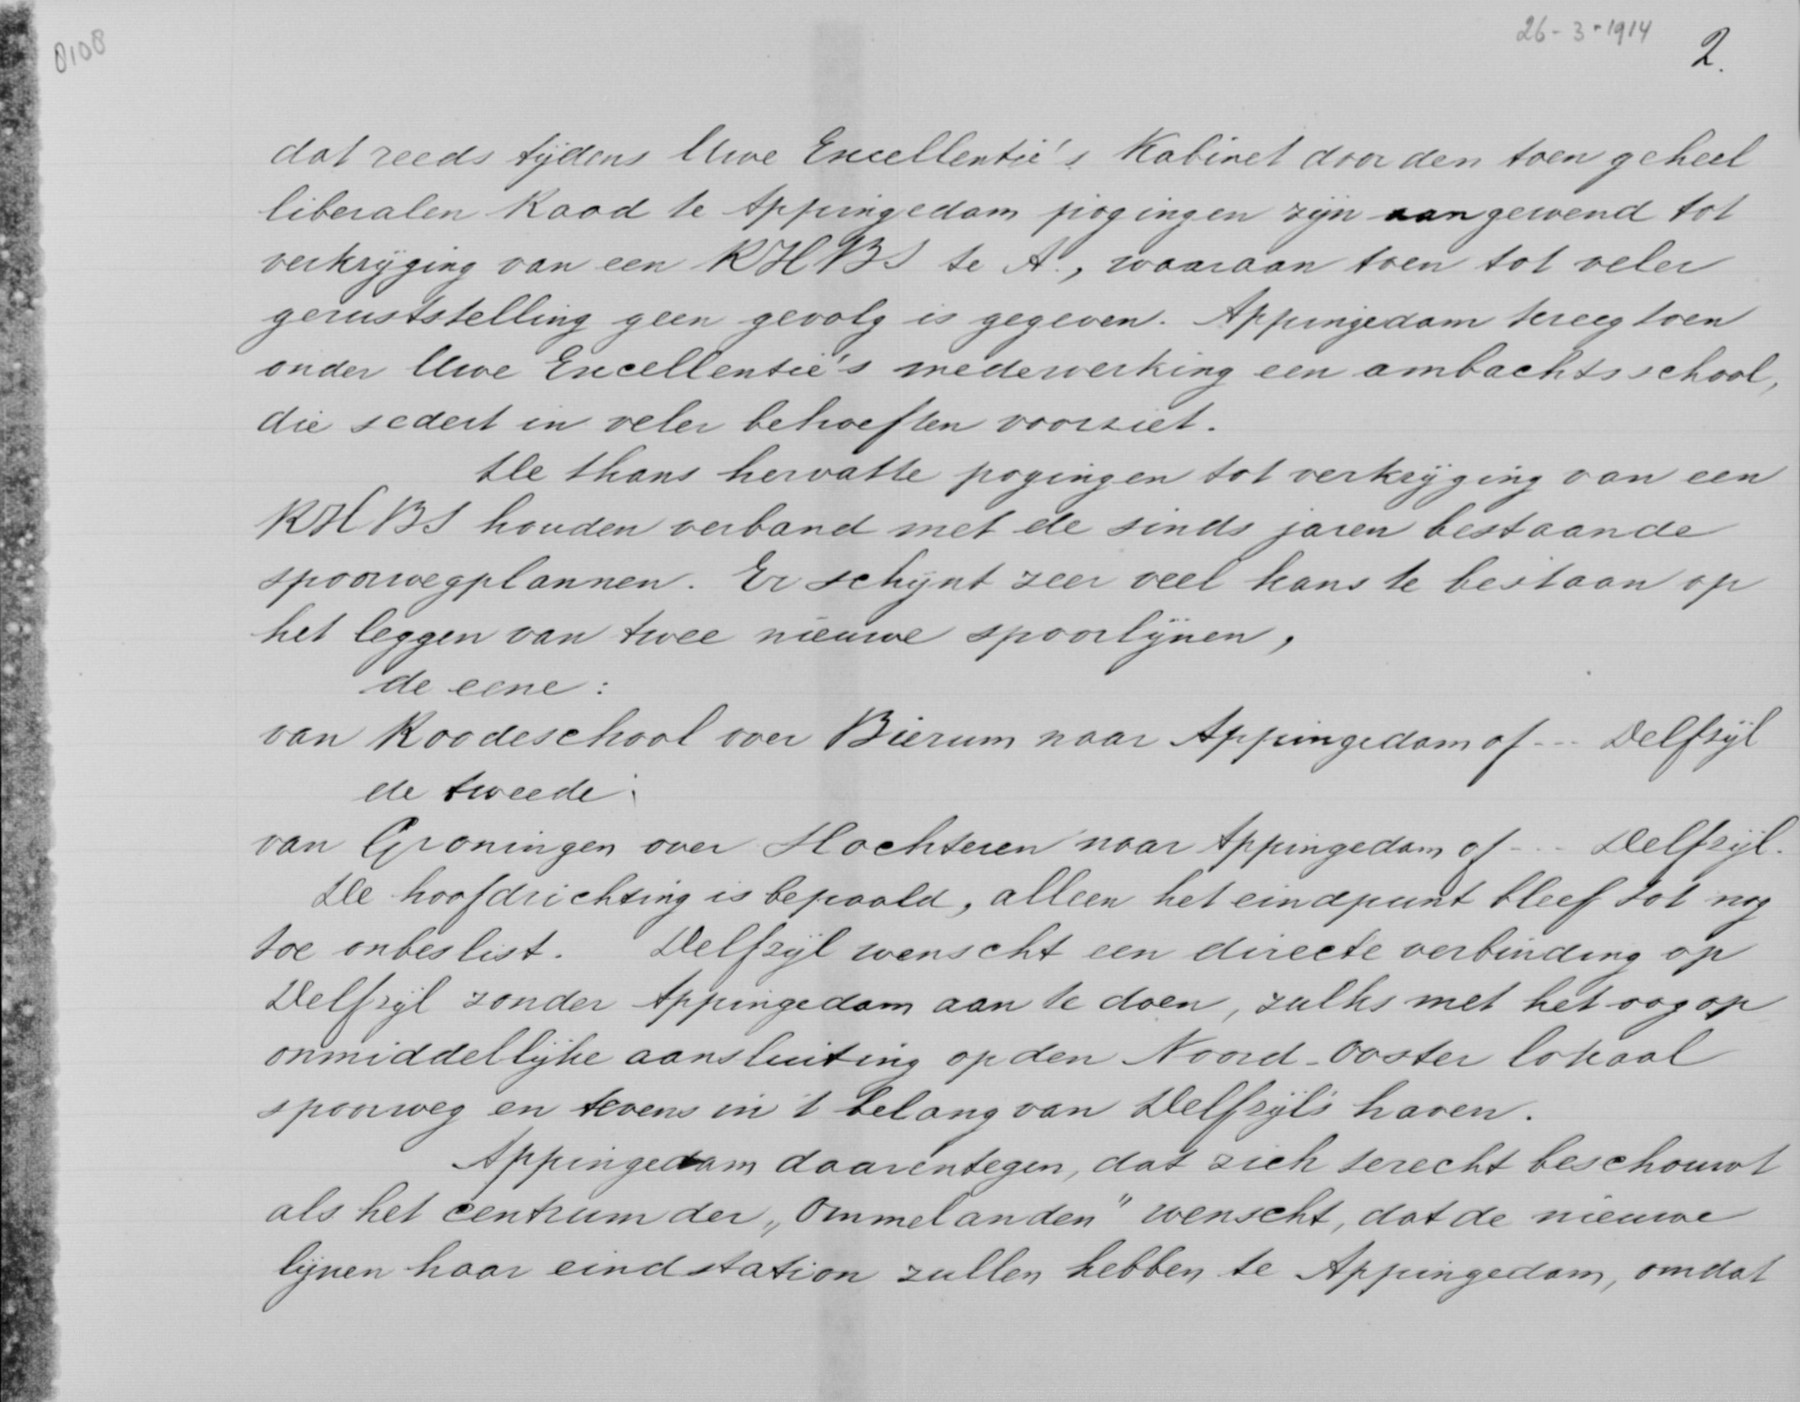 0108
26-3-1914
2.
dat reeds tijdens Uwe Excellentie's Kabinet door den toen geheel
liberalen Raad te Appingedam pogingen zijn aangewend tot
verkrijging van een RHBS te A., waaraan toen tot veler
geruststelling geen gevolg is gegeven. Appingedam kreeg toen
onder Uwe Excellentie's medewerking een ambachtsschool,
die sedert in veler behoeften voorziet.
De thans hervatte pogingen tot verkrijging van een
RHBS houden verband met de sinds jaren bestaande
spoorwegplannen. Er schijnt zeer veel kans te bestaan op
het leggen van twee nieuwe spoorlijnen,
de eene:
van Roodeschool over Bierum naar Appingedam of --- Delfzijl
de tweede:
van Groningen over Slochteren naar Appingedam of --- Delfzijl.
De hoofdrichting is bepaald, alleen het eindpunt bleef tot nog
toe onbeslist. Delfzijl wenscht een directe verbinding op
Delfzijl zonder Appingedam aan te doen, zulks met het oog op
onmiddellijke aansluiting op den Noord-Ooster lokaal
spoorweg en tevens in 't belang van Delfzijl's haven.
Appingedam daarentegen, dat zich terecht beschouwt
als het centrum der „Ommelanden" wenscht, dat de nieuwe
lijnen haar eindstation zullen hebben te Appingedam, omdat